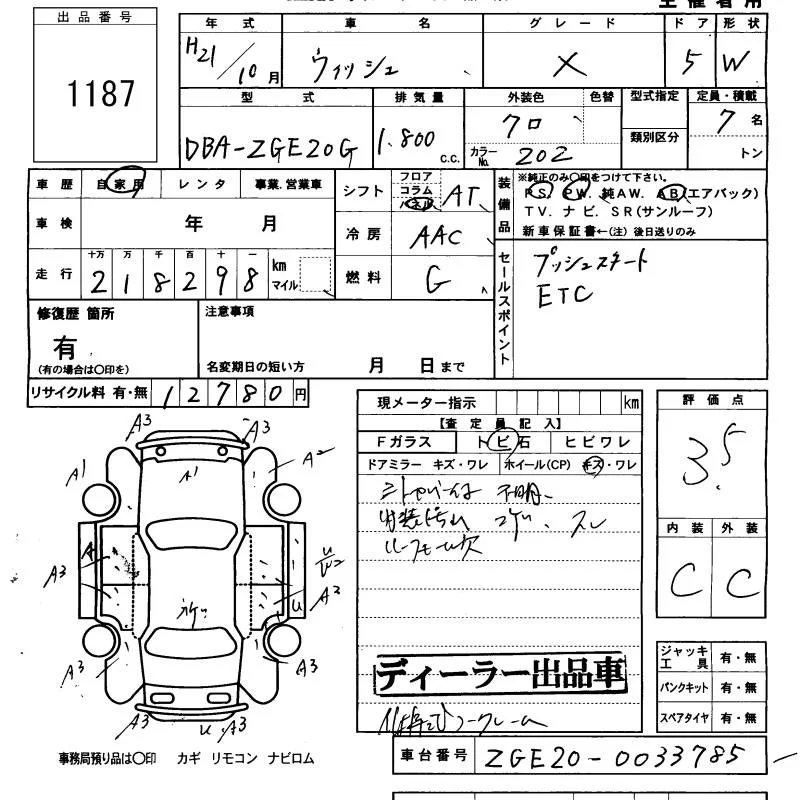 主催者用
出品番号
1187
年式 車名 グレード ドア 形状
H21/10月 ウィッシュ X 5 W
型式 排気量 外装色 色替 型式指定 定員・積載
DBA-ZGE20G 1.800 c.c. クロ カラーNo. 202 類別区分 7名
トン
車歴 自家用 レンタ 事業.営業車
シフト フロア コラム パネル AT
装備品
※純正のみ〇印をつけて下さい。
PS. PW. 純AW. AB(エアバック)
TV. ナビ. SR(サンルーフ)
新車保証書←(注) 後日送りのみ
車検 年 月
冷房 AAC
走行 十万 万 千 百 十 一
218298 km マイル
燃料 G
セールスポイント
プッシュスタート
ETC
修復歴 箇所
有
(有の場合は〇印を)
注意事項
名変期日の短い方 月 日まで
リサイクル料 有・無 12780円
現メーター指示 km
【査定員記入】
Fガラス トビ石 ヒビワレ
ドアミラー キズ・ワレ ホイール(CP) キズ・ワレ
不明
内装 スレ
ディーラー出品車
評価点
3.5
内装 外装
C C
ジャッキ工具 有・無
パンクキット 有・無
スペアタイヤ 有・無
A3 A3
A1 A1 A2
A
A3 U W2
U A3
A3 A3
A3 U A3
事務局預り品は〇印 カギ リモコン ナビロム
車台番号 ZGE20-0033785